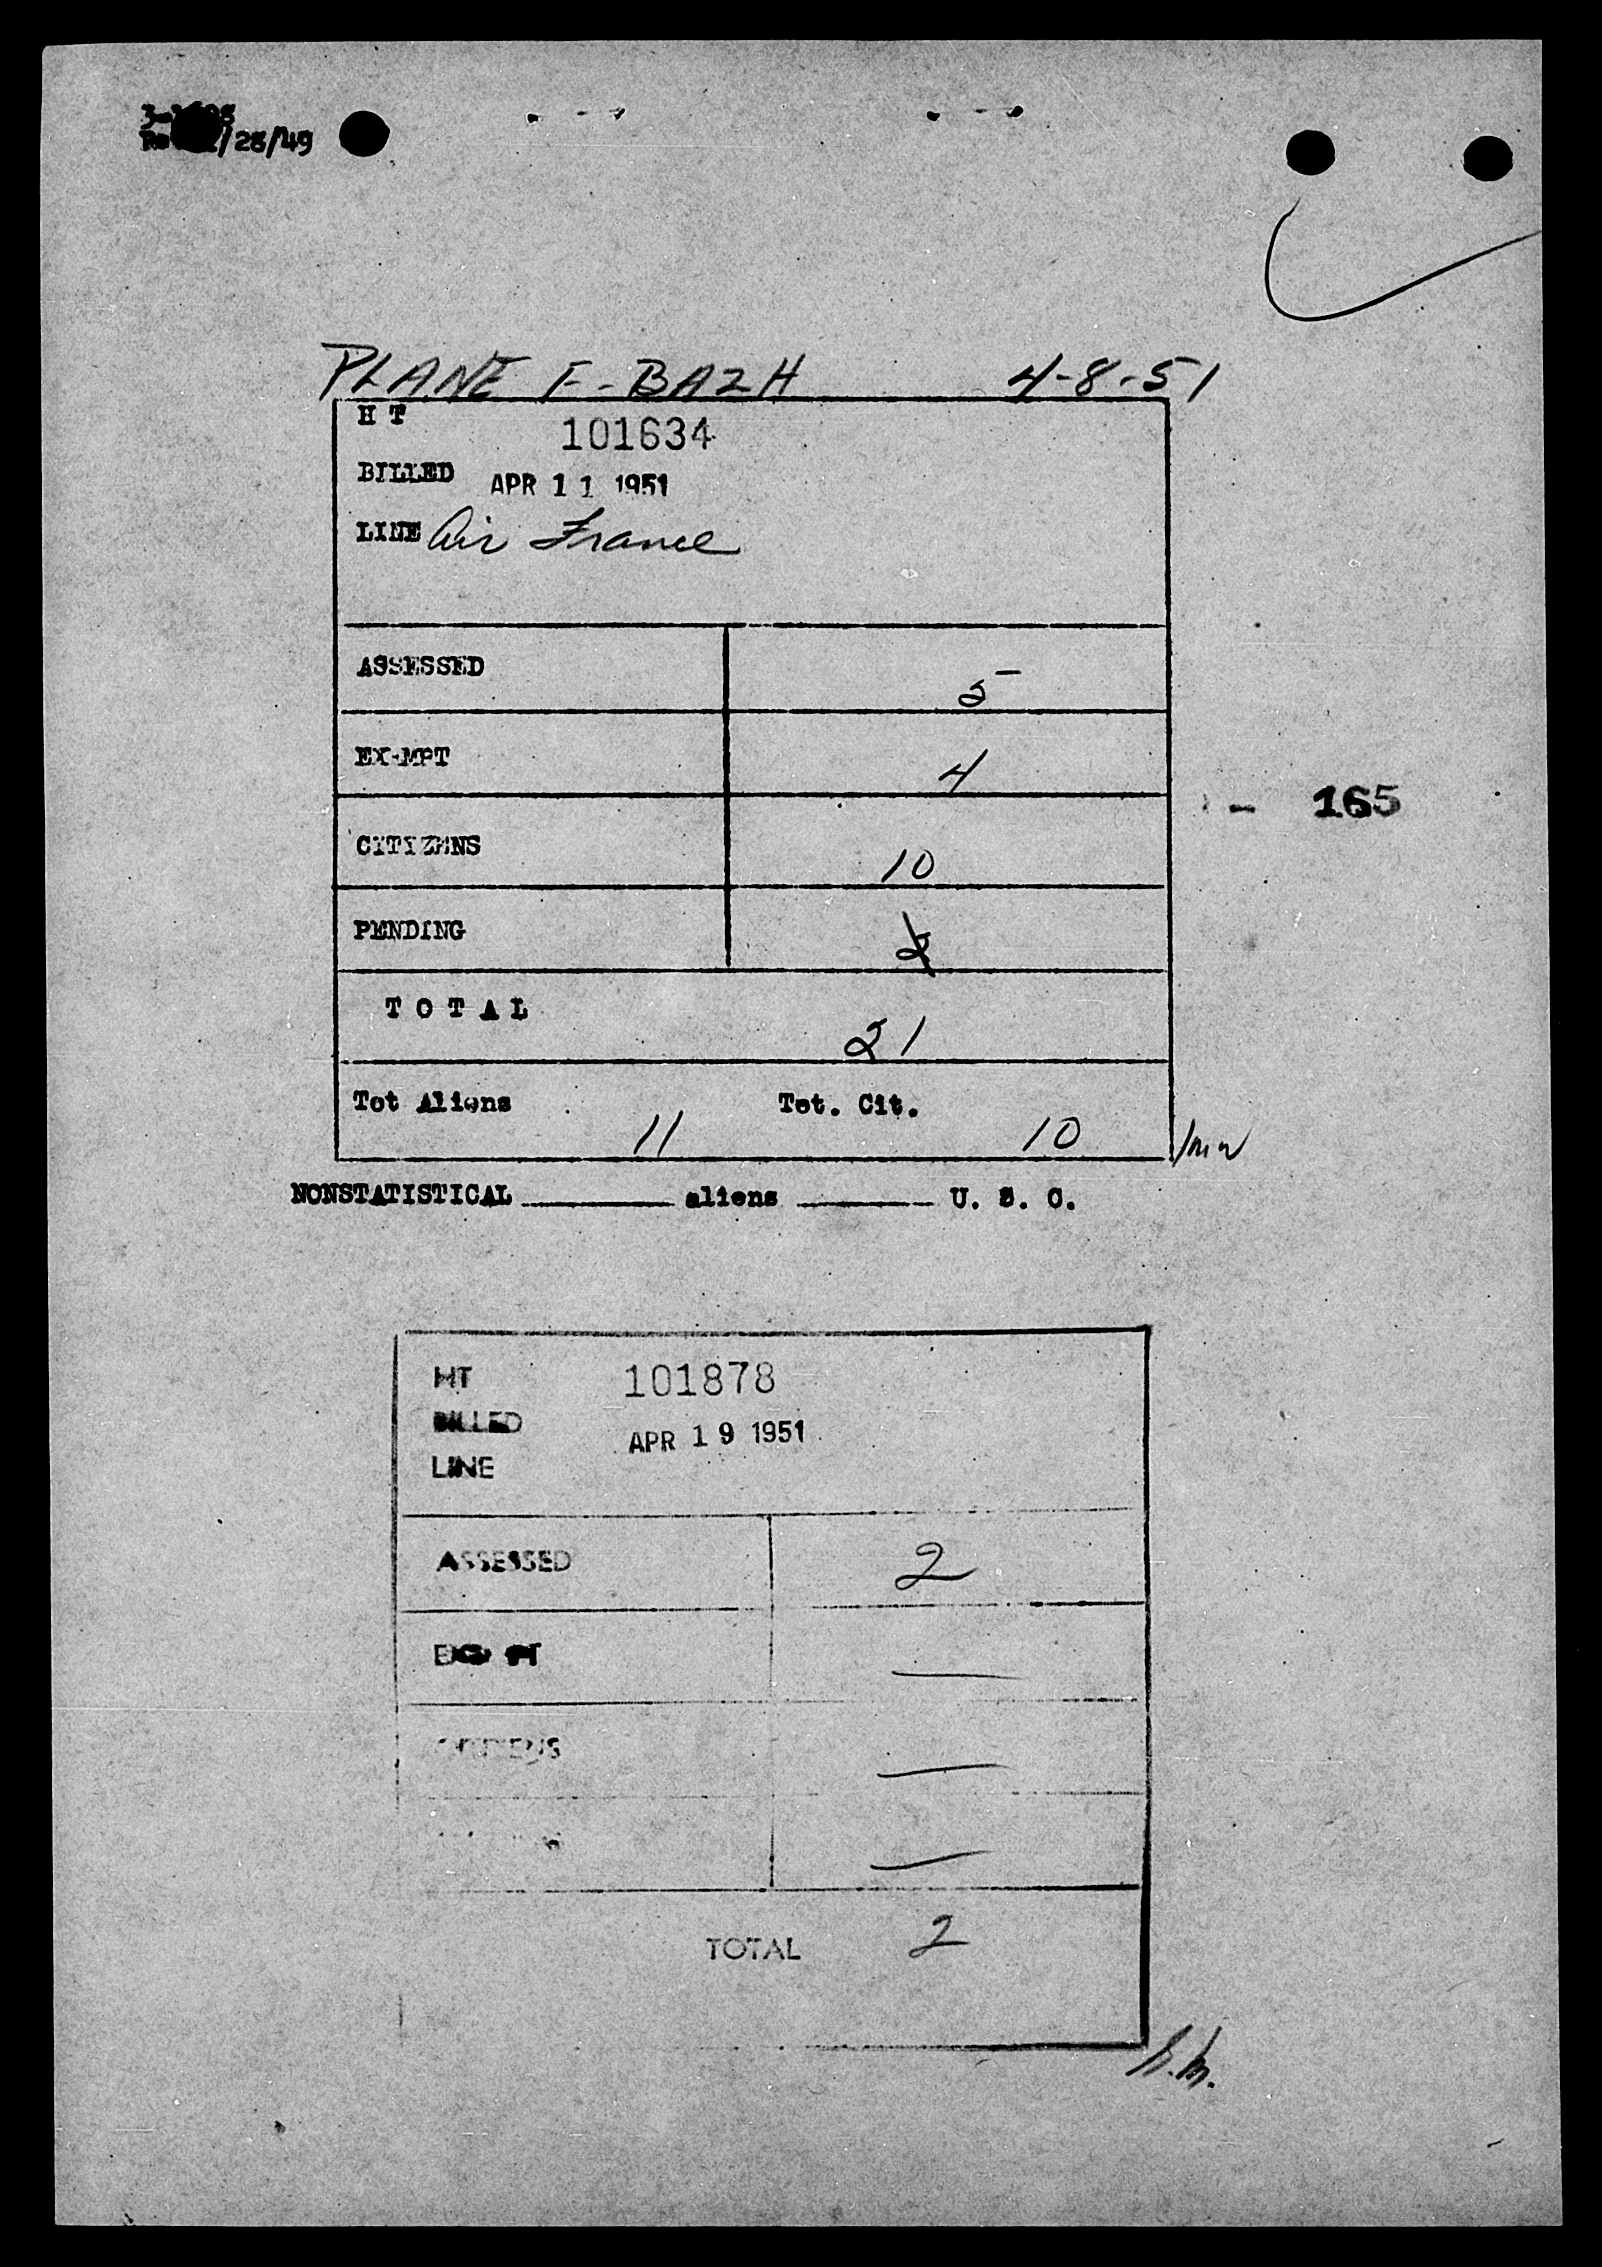 /28/49
PLANE F-BAZH 4-8-51
H T 101634
BILLED APR 11 1951
LINE Air France
ASSESSED 5
EXEMPT 4
- 165
CITIZENS 10
PENDING 2
T O T A L 21
Tot Aliens 11 Tot. Cit. 10
NONSTATISTICAL ______ aliens ______ U. S. C.
HT 101878
BILLED APR 19 1951
LINE
ASSESSED 2
—
—
—
TOTAL 2